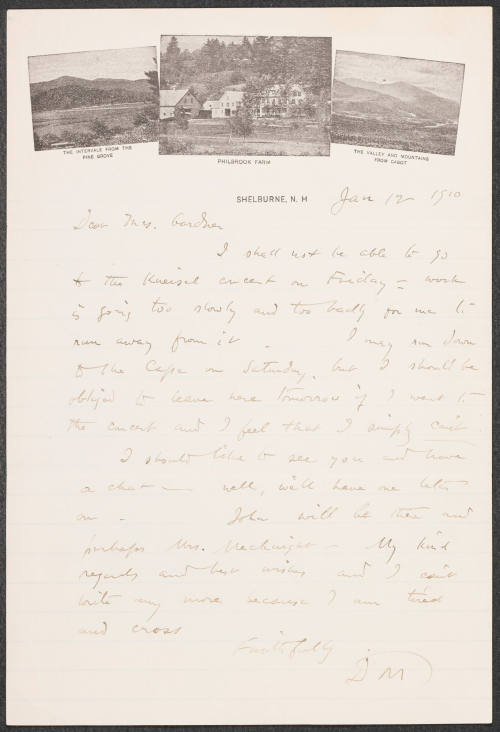 THE INTERVALE FROM THE
PINE GROVE
PHILBROOK FARM
THE VALLEY AND MOUNTAINS
FROM CABOT
SHELBURNE, N. H
Jan 12 1910
Dear Mrs. Gardner
I shall not be able to go
to the Kneisel concert on Friday - work
is going too slowly and too badly for me to
run away from it - I may run down
to the Cape on Saturday, but I should be
obliged to leave here tomorrow if I went to
the concert and I feel that I simply can't.
I should like to see you and have
a chat - well, we'll have one later
on - John will be there and
perhaps Mrs. - My kind
regards and best wishes and I can't
write any more because I am tired
and cross
Faithfully
D M